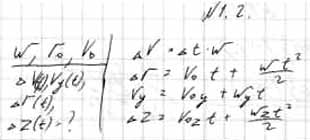 N1.2.
W, r₀, V₀
Δ V, Vy(t),
Δr(t),
ΔZ(t) = ?
ΔV = Δt · W
Δr = V₀ t + Wt²/2
Vy = V₀y + Wy t
ΔZ = V₀z t + Wz t²/2